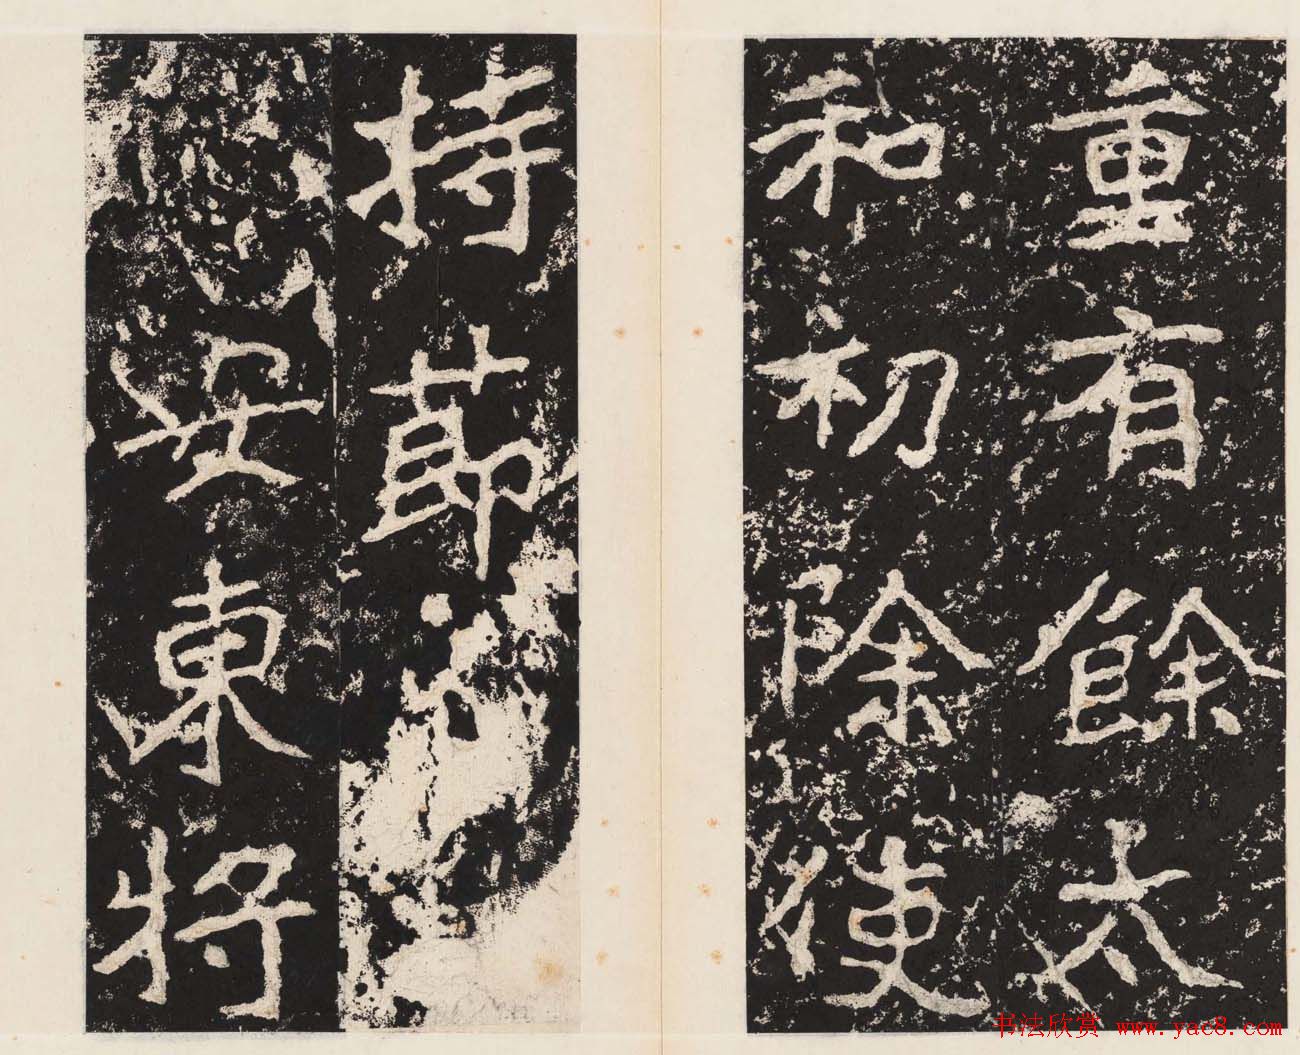 重有餘太
和初除使
持莭
安東將
书法欣赏 www.yac8.com